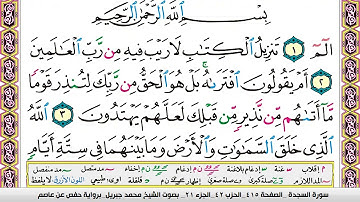 بِسْمِ اللَّهِ الرَّحْمَٰنِ الرَّحِيمِ
الٓمٓ ١ تَنزِيلُ الْكِتَابِ لَا رَيْبَ فِيهِ مِن رَّبِّ الْعَالَمِينَ
٢ أَمْ يَقُولُونَ افْتَرَاهُ ۚ بَلْ هُوَ الْحَقُّ مِن رَّبِّكَ لِتُنذِرَ قَوْمًا
مَّا أَتَاهُم مِّن نَّذِيرٍ مِّن قَبْلِكَ لَعَلَّهُمْ يَهْتَدُونَ ٣ اللَّهُ
الَّذِي خَلَقَ السَّمَاوَاتِ وَالْأَرْضَ وَمَا بَيْنَهُمَا فِي سِتَّةِ أَيَّامٍ
سورة السجدة . الصفحة ٤١٥ . الحزب ٤٢ . الجزء ٢١ . بصوت الشيخ محمد جبريل . برواية حفص عن عاصم